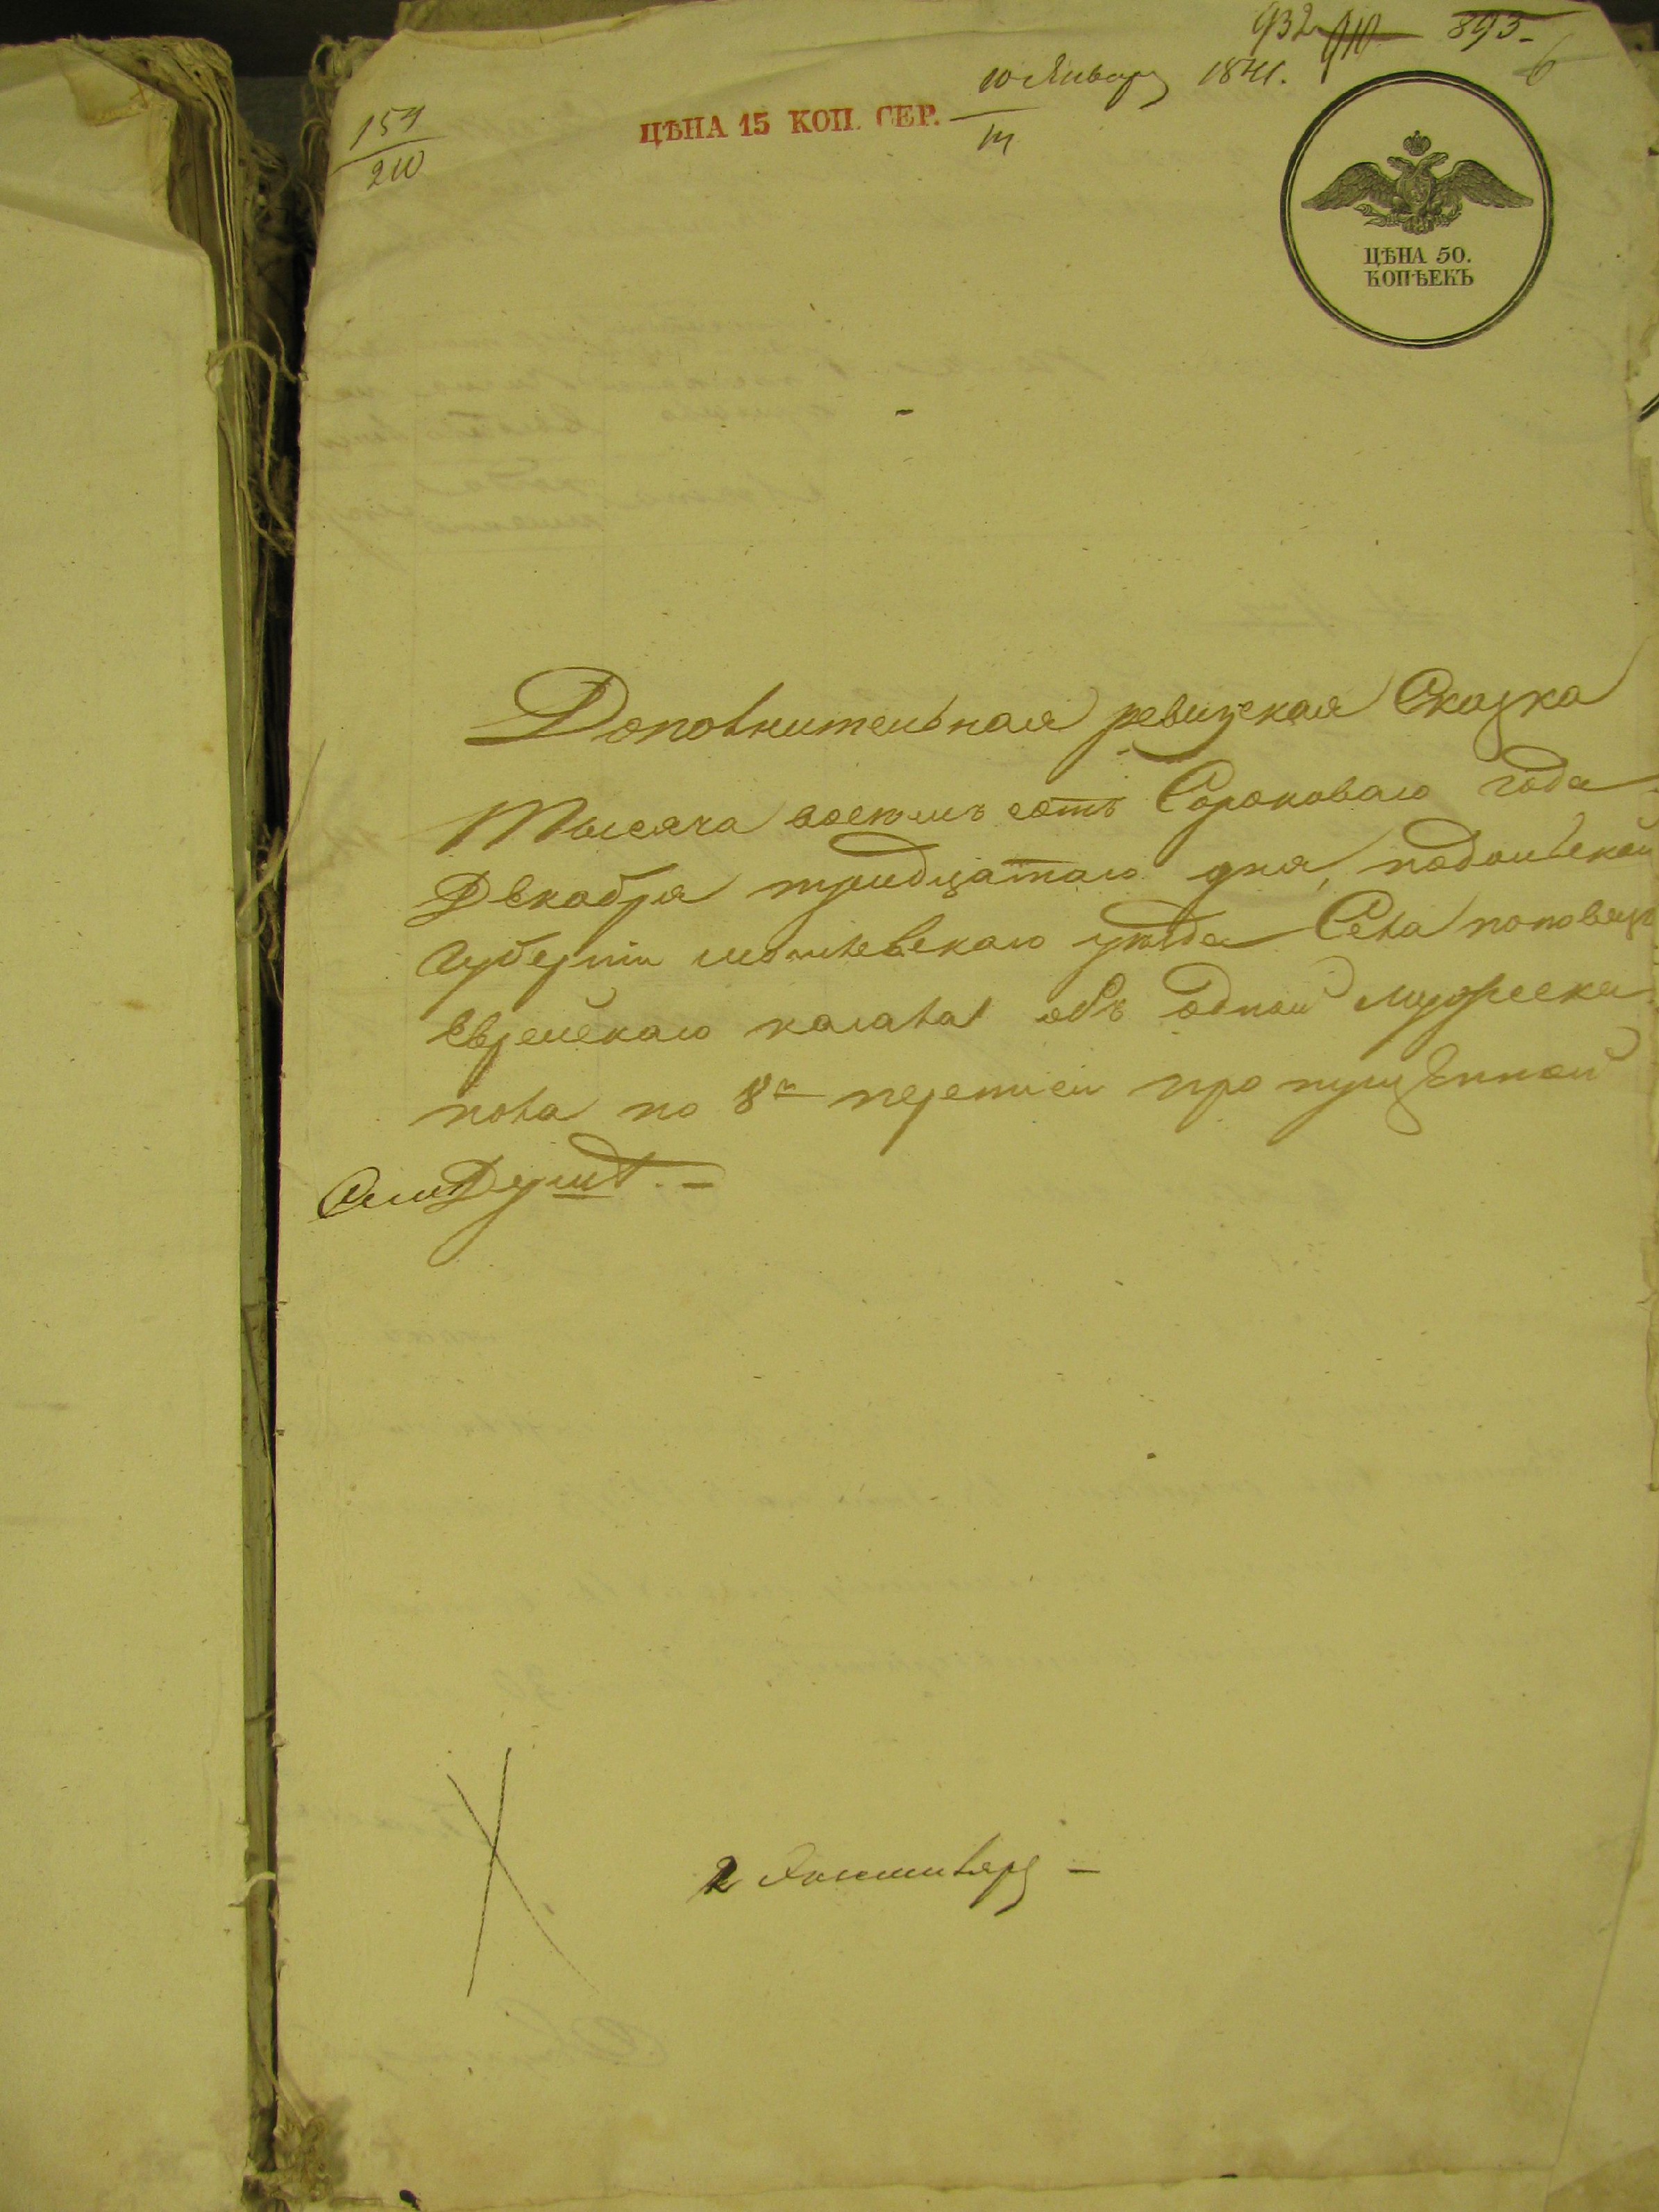 932 910 893
6
10 Января 1841.
154
210
ЦѢНА 15 КОП. СЕР.
ЦѢНА 50.
КОПѢЕКЪ
Дополнительная ревизская Сказка
Тысяча восемъ сотъ Сороковаго года
Декабря тридцатаго дня, подольской
губерніи могилевскаго уѣзда Села поповецъ
Еврейскаго кагала объ одной муж: реска
пола по 8й переписи пропущенной
2 Экземпляръ —